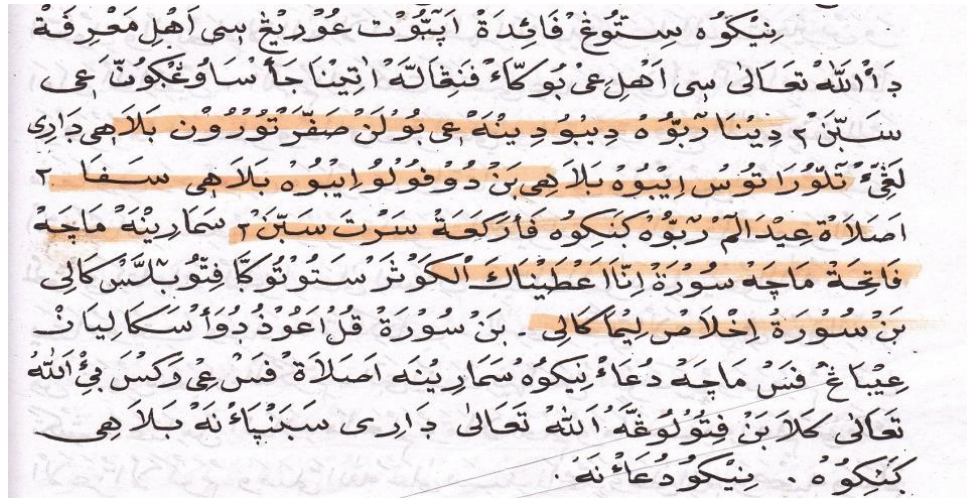 نِيْكُوْه سِتُوْڠْ فَائِدَةْ اَپَتُّوْتْ عَوْرِيْڠْ سِى اَهْلِ مَعْرِفَةْ
دَاْ اللهْ تَعَالٰى سِى اَهْلِ عِىْ بُوكَّاءْ فَنِڤَالَهْ اَتِيْنَا جَأْ سَاوُڠْكُوْنَ عِى
سَبَّنْ٢ دِيْنَا رَبُّوْهْ دِيْبُوْدِيْنَهْ عِى بُوْلَنْ صَفَرْ تُوْرُوْنْ بَلَاهِى دَارِى
لَڠِىْءْ تَلُّوْرَاتُوْسْ اِيْبُوْهْ بَلَاهِى بَنْ دُوْفُوْلُوْ اِيْبُوْهْ بَلَاهِى سَفَا ٢
اَصَلَاةْ عِيْدَالَمْ رَبُّوْهْ كَنِكُوْه فَأْرَكَعَةْ سَرْتَ سَبَّنْ٢ سَمَارِيْنَهْ مَاچَهْ
فَاتِحَةْ مَاچَهْ سُوْرَةْ اِنَّا اَعْطَيْنَاكَ الْكَوْثَرْ سَتُوْتُوْكَّا فِتُّوْبَلَّسْ كَالِى
بَنْ سُوْرَةْ اِخْلَاصْ لِيْمَا كَالِى . بَنْ سُوْرَةْ قُلْ اَعُوْذُ دُوَأْ سَكَالِيَانْ
عِيْبَاڠْ فَسْ مَاچَهْ دُعَاءْ نِيْكُوْه سَمَارِيْنَه اَصَلَاةْ فَسْ عِى رَكْسَ بِىْءْ اَللهْ
تَعَالٰى كَلَابَنْ فِتُوْلُوْڠَّهْ اللهْ تَعَالٰى دَارِى سَبَنْپَاءْنَهْ بَلَاهِى
كَنِكُوْه . نِيْكُوْ دُعَاءْنَهْ .